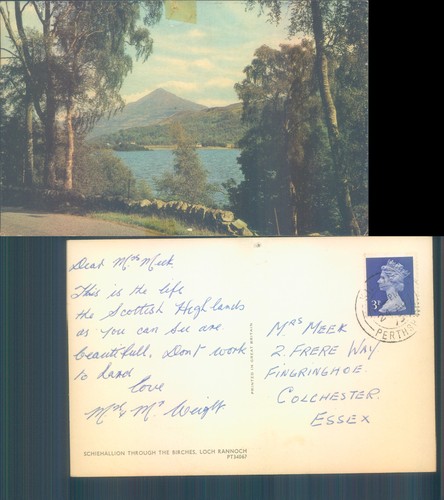 Dear Mrs Meek.
This is the life
the Scottish Highlands
as you can see are
beautifull. Dont work
to hard
love
Mrs & Mr Wright
MRS MEEK
2. FRERE WAY
FINGRINGHOE.
COLCHESTER.
ESSEX
3P
PERTH
PRINTED IN GREAT BRITAIN
SCHIEHALLION THROUGH THE BIRCHES, LOCH RANNOCH
PT36067